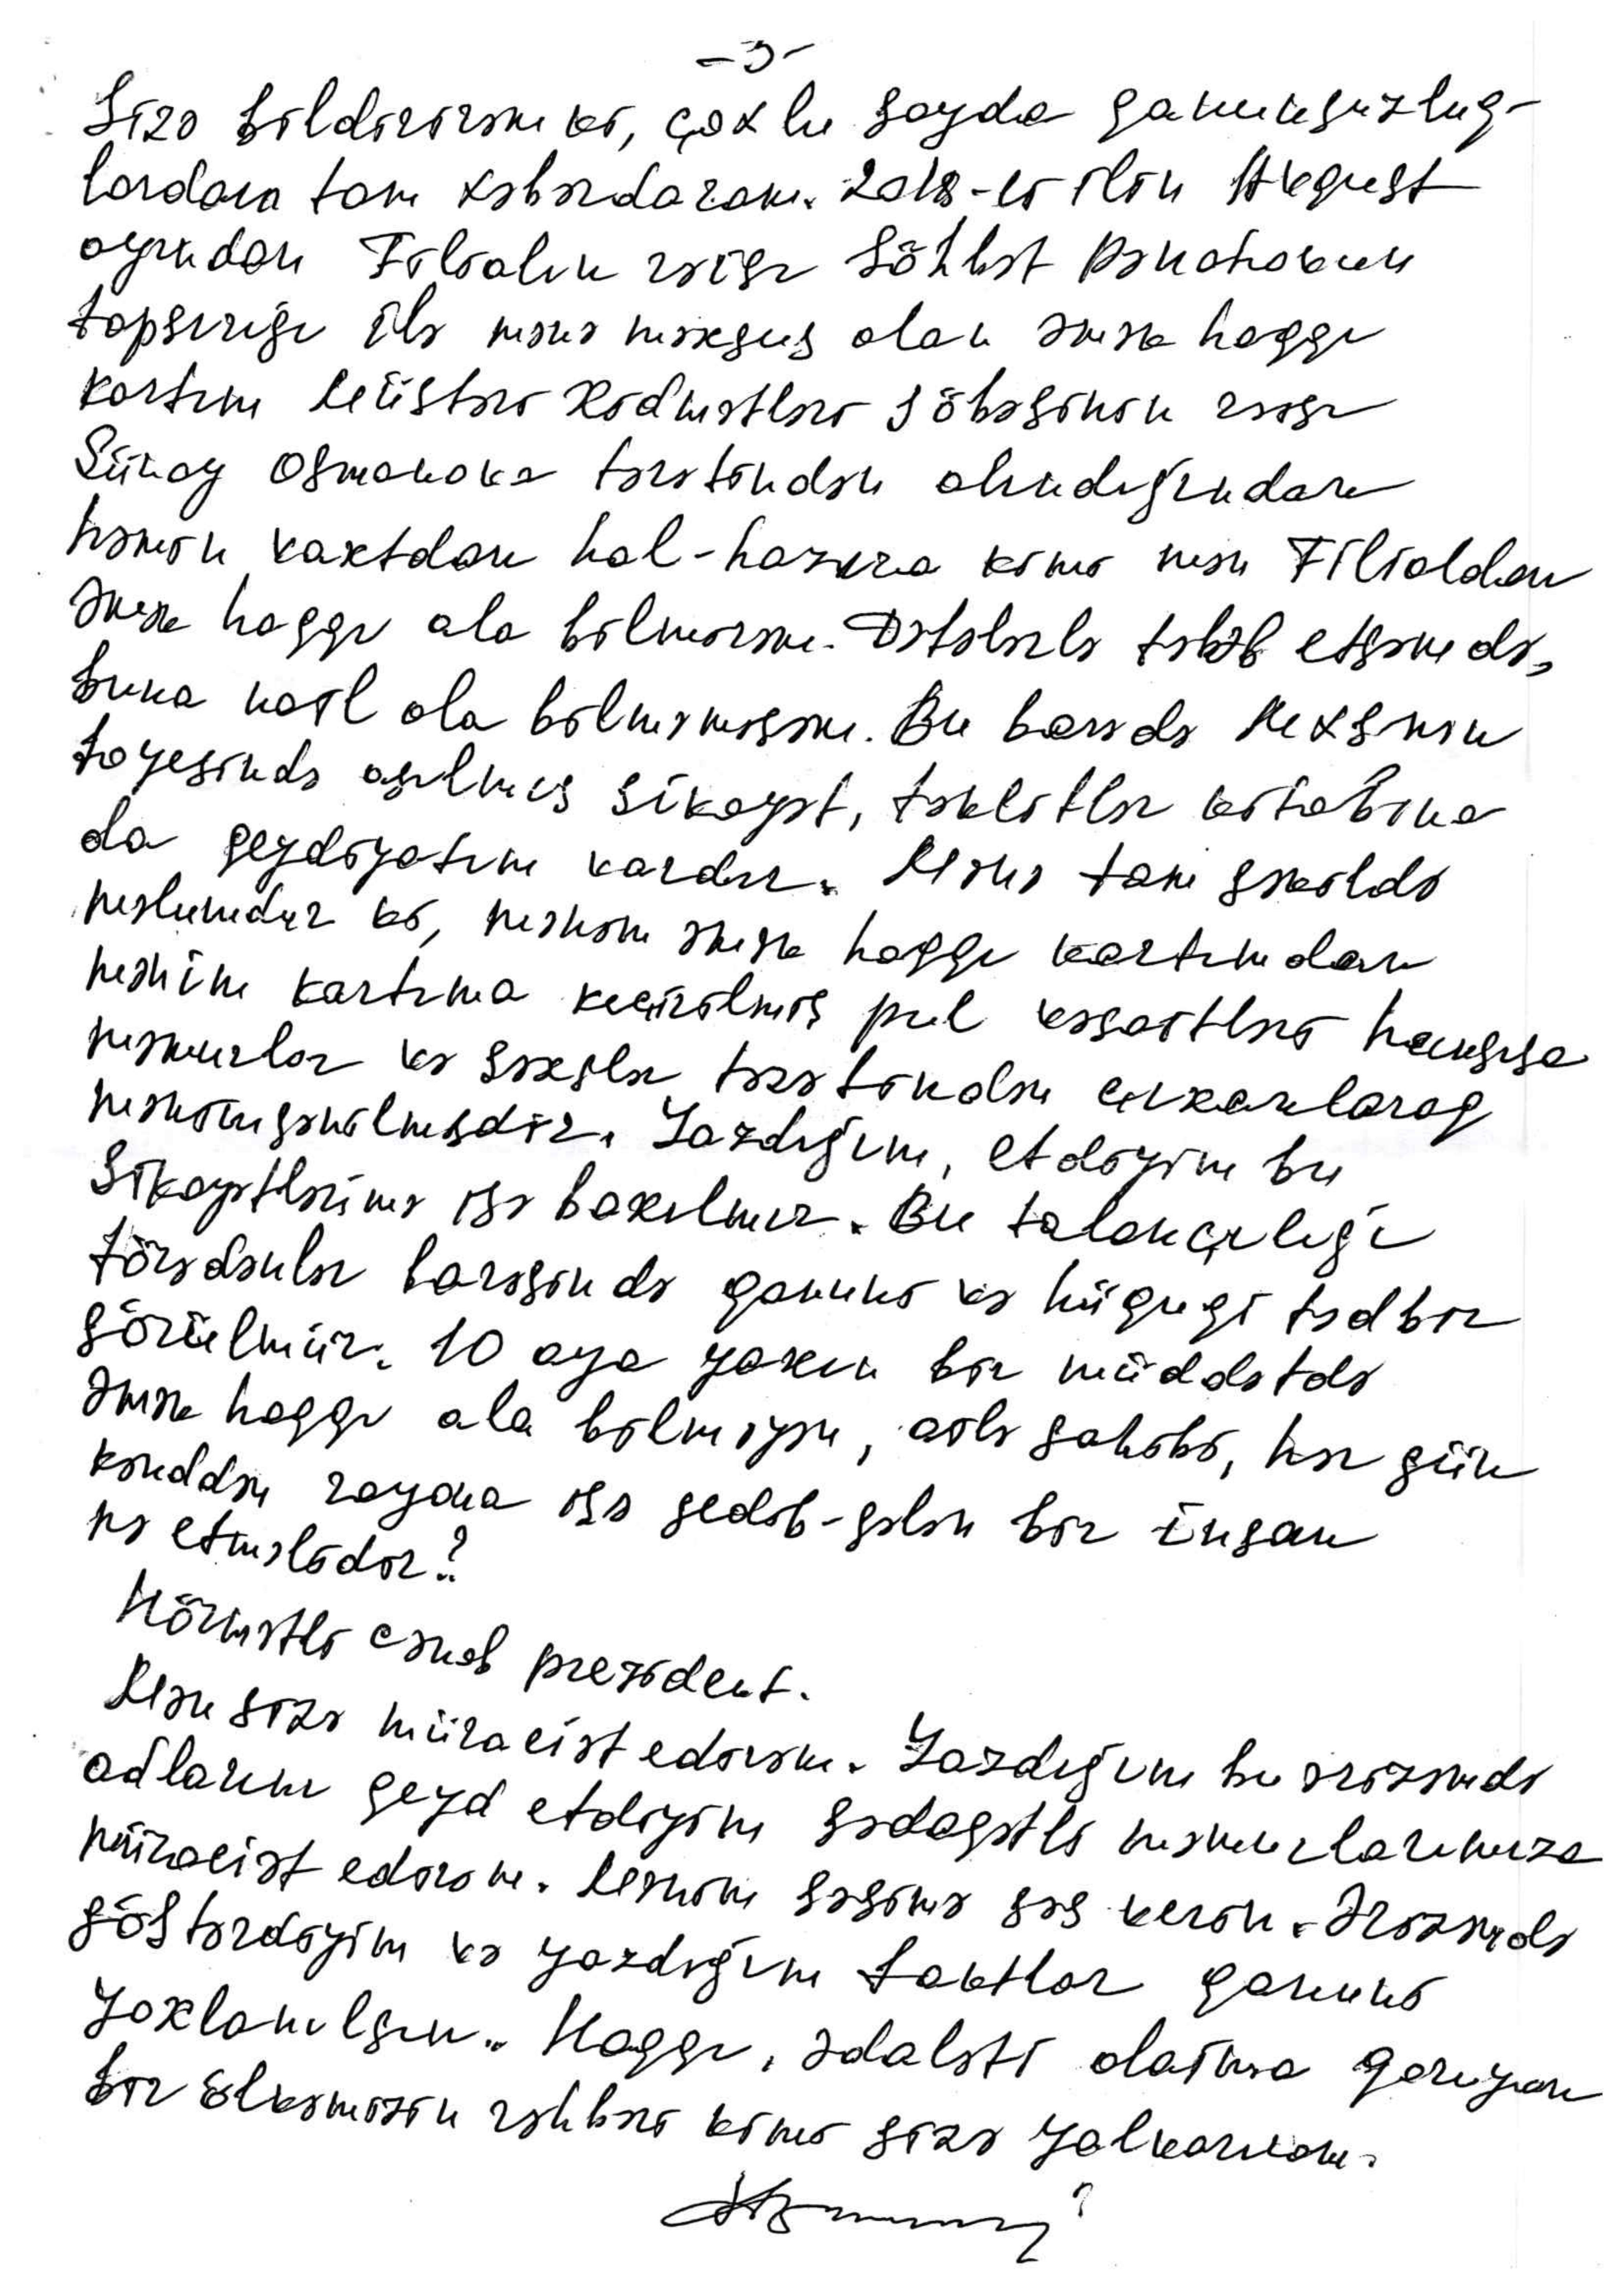 -3-
Sizə bildirirəm ki, çoxlu sayda qanunsuzluq-
lardan tam xəbərdaram. 2018-ci ilin Avqust
ayından Filialın rəisi Söhbət Pənahovun
tapşırığı ilə mənə məxsus olan əmək haqqı
kartım Müştəri Xidmətləri şöbəsinin rəisi
Günay Osmanova tərəfindən alındığından
həmin vaxtdan hal-hazıra kimi mən Filialdan
əmək haqqı ala bilmirəm. Dəfələrlə tələb etsəmdə,
buna nail ola bilməmişəm. Bu barədə MXSnin
fayesində asılmış şikayət, təkliflər kitabına
da qeydiyatım vardır. Mənə tam şəkildə
məlumdur ki, mənim əmək haqqı kartımdan
mənim kartıma keçirilmiş pul vəsaitləri hansısa
məmurlar və şəxslər tərəfindən çıxarılaraq
mənimsənilmişdir. Yazdığım, etdiyim bu
şikayətlərimə isə baxılmır. Bu talançılığı
törədənlər barəsində qanuni və hüquqi tədbir
görülmür. 10 aya yaxın bir müddətdə
əmək haqqı ala bilməyən, ailə sahibi, hər gün
kənddən rayona işə gedib-gələn bir insan
nə etməlidir?
Hörmətli cənab prezident.
Mən sizə müraciət edirəm. Yazdığım bu ərizəmdə
adlarını qeyd etdiyim sədaqətli məmurlarımıza
müraciət edirəm. Mənim səsimə səs verin. Ərizəmdə
göstərdiyim və yazdığım faktlar qanuni
yoxlanılsın. Haqqı, ədaləti daima qoruyan
bir ölkəmizin rəhbəri kimi sizə yalvarıram.